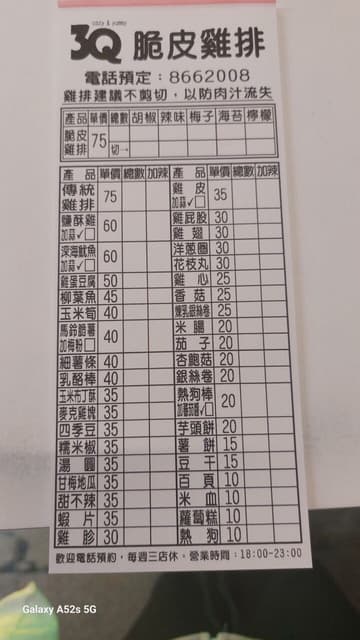 3Q 脆皮雞排
電話預定：8662008
雞排建議不剪切，以防肉汁流失
產品 單價 總數 胡椒 辣味 梅子 海苔 檸檬
脆皮雞排 75 切→
產品 單價 總數 加辣 產品 單價 總數 加辣
傳統雞排 75 雞皮 35
鹽酥雞 加蒜✓□ 60 雞屁股 30
雞翅 30
深海魷魚 加蒜✓□ 60 洋蔥圈 30
花枝丸 30
雞蛋豆腐 50 雞心 25
柳葉魚 45 香菇 25
玉米筍 40 煉乳銀絲卷 25
馬鈴薯薯 加梅粉□ 40 米腸 20
茄子 20
細薯條 40 杏鮑菇 20
乳酪棒 40 銀絲卷 20
玉米布丁酥 35 熱狗棒 加番茄醬✓□ 20
麥克雞塊 35
四季豆 35 芋頭餅 20
糯米椒 35 薯餅 15
湯圓 35 豆干 15
甘梅地瓜 35 百頁 10
甜不辣 35 米血 10
蝦片 35 蘿蔔糕 10
雞胗 30 熱狗 10
歡迎電話預約，每週三店休。營業時間：18:00-23:00
Galaxy A52s 5G